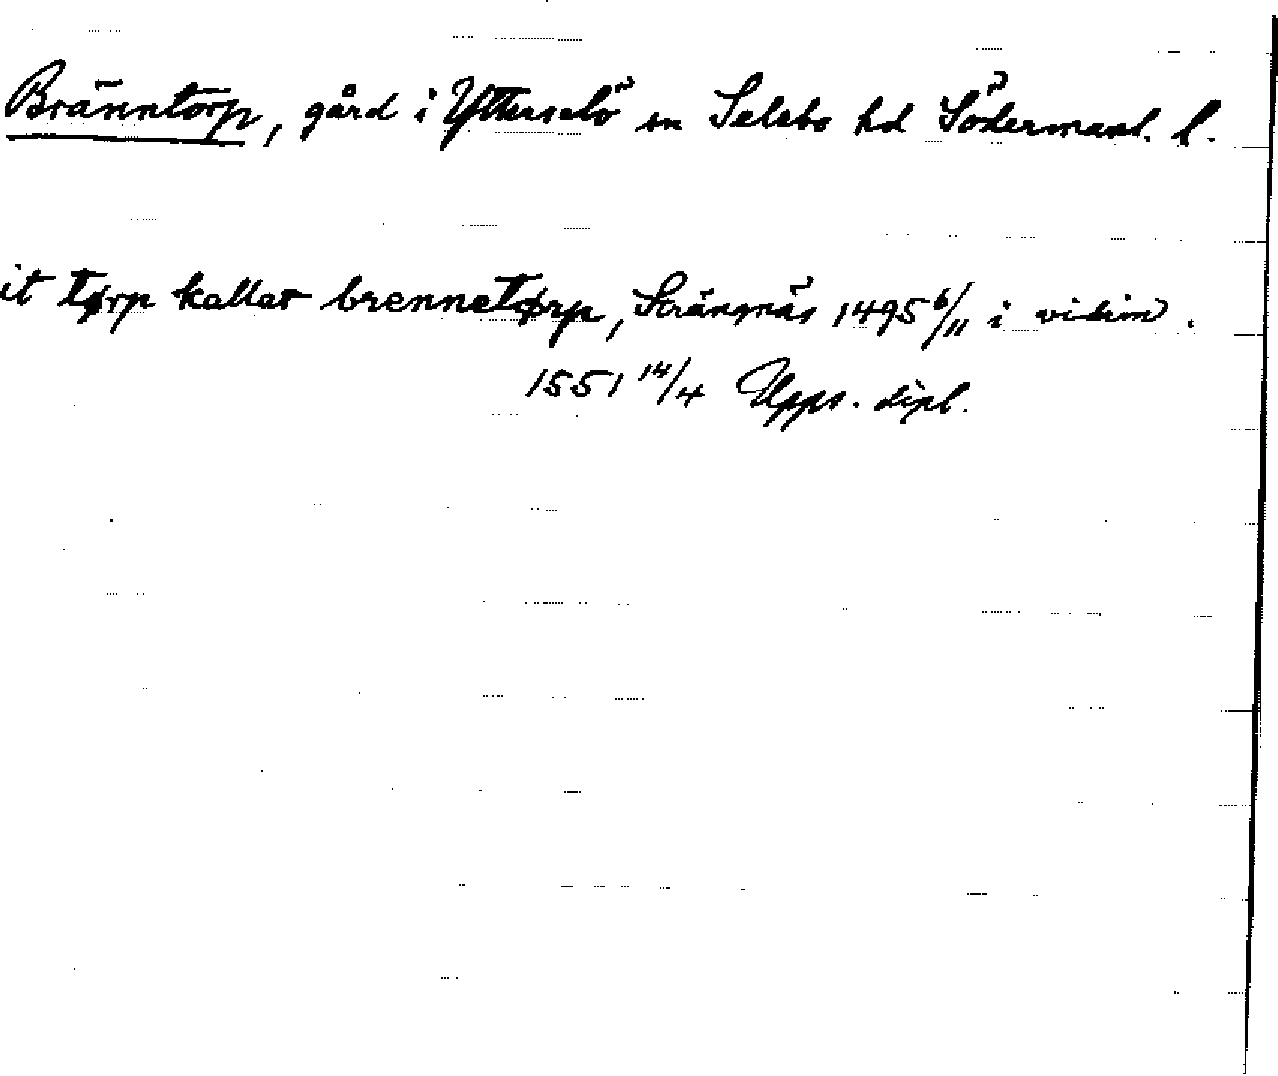 Bränntorp, gård i Ytterselö sn Selebo hd Södermanl. l.
it tørp kallat brennetørp, Strängnäs 1495 6/11 i vidim.
1551 14/4 Upps. dipl.